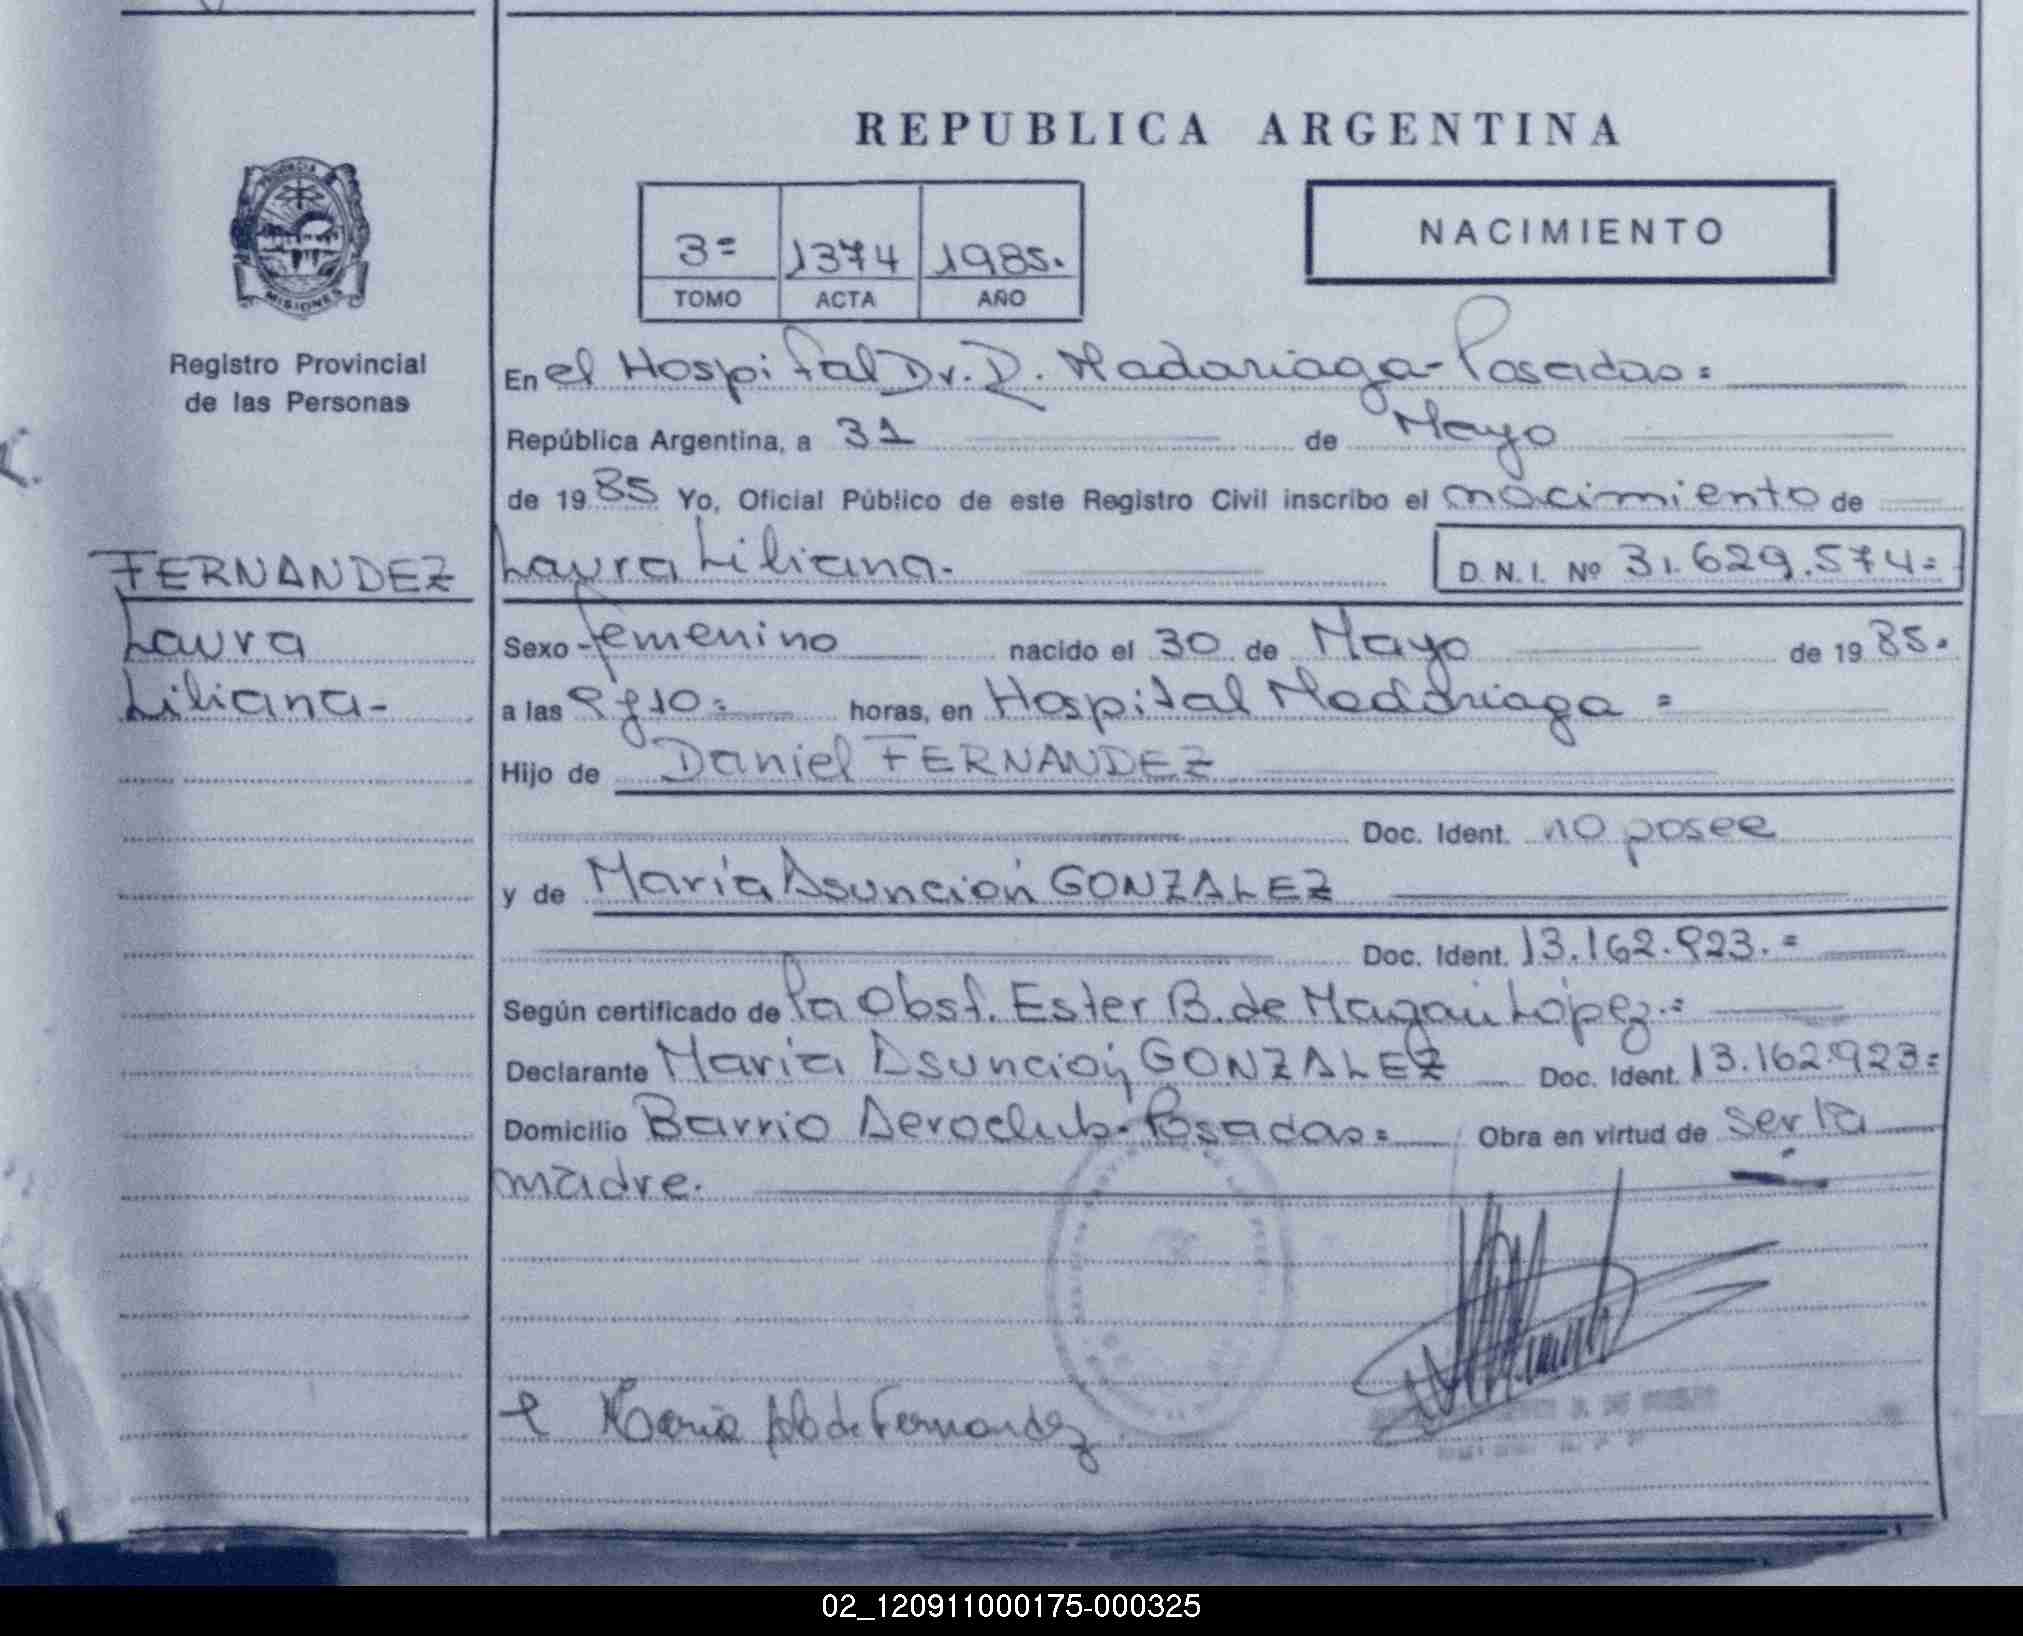 REPUBLICA ARGENTINA
PROVINCIA
MISIONES
Registro Provincial
de las Personas
3= 1374 1985.
TOMO ACTA AÑO
NACIMIENTO
En el Hospital Dr. R. Madariaga - Posadas =
República Argentina, a 31 de Mayo
de 1985 Yo, Oficial Público de este Registro Civil inscribo el nacimiento de
FERNANDEZ
Laura
Liliana-
Laura Liliana. D.N.I. Nº 31.629.574=
Sexo femenino nacido el 30 de Mayo de 1985.
a las 9 y 10= horas, en Hospital Madariaga =
Hijo de Daniel FERNANDEZ
Doc. Ident. no posee
y de María Asunción GONZALEZ
Doc. Ident. 13.162.923.=
Según certificado de la Obst. Ester B. de López.=
Declarante María Asunción GONZALEZ Doc. Ident. 13.162.923=
Domicilio Barrio Aeroclub-Posadas= Obra en virtud de ser la
madre.
María de Fernandez
02_120911000175-000325